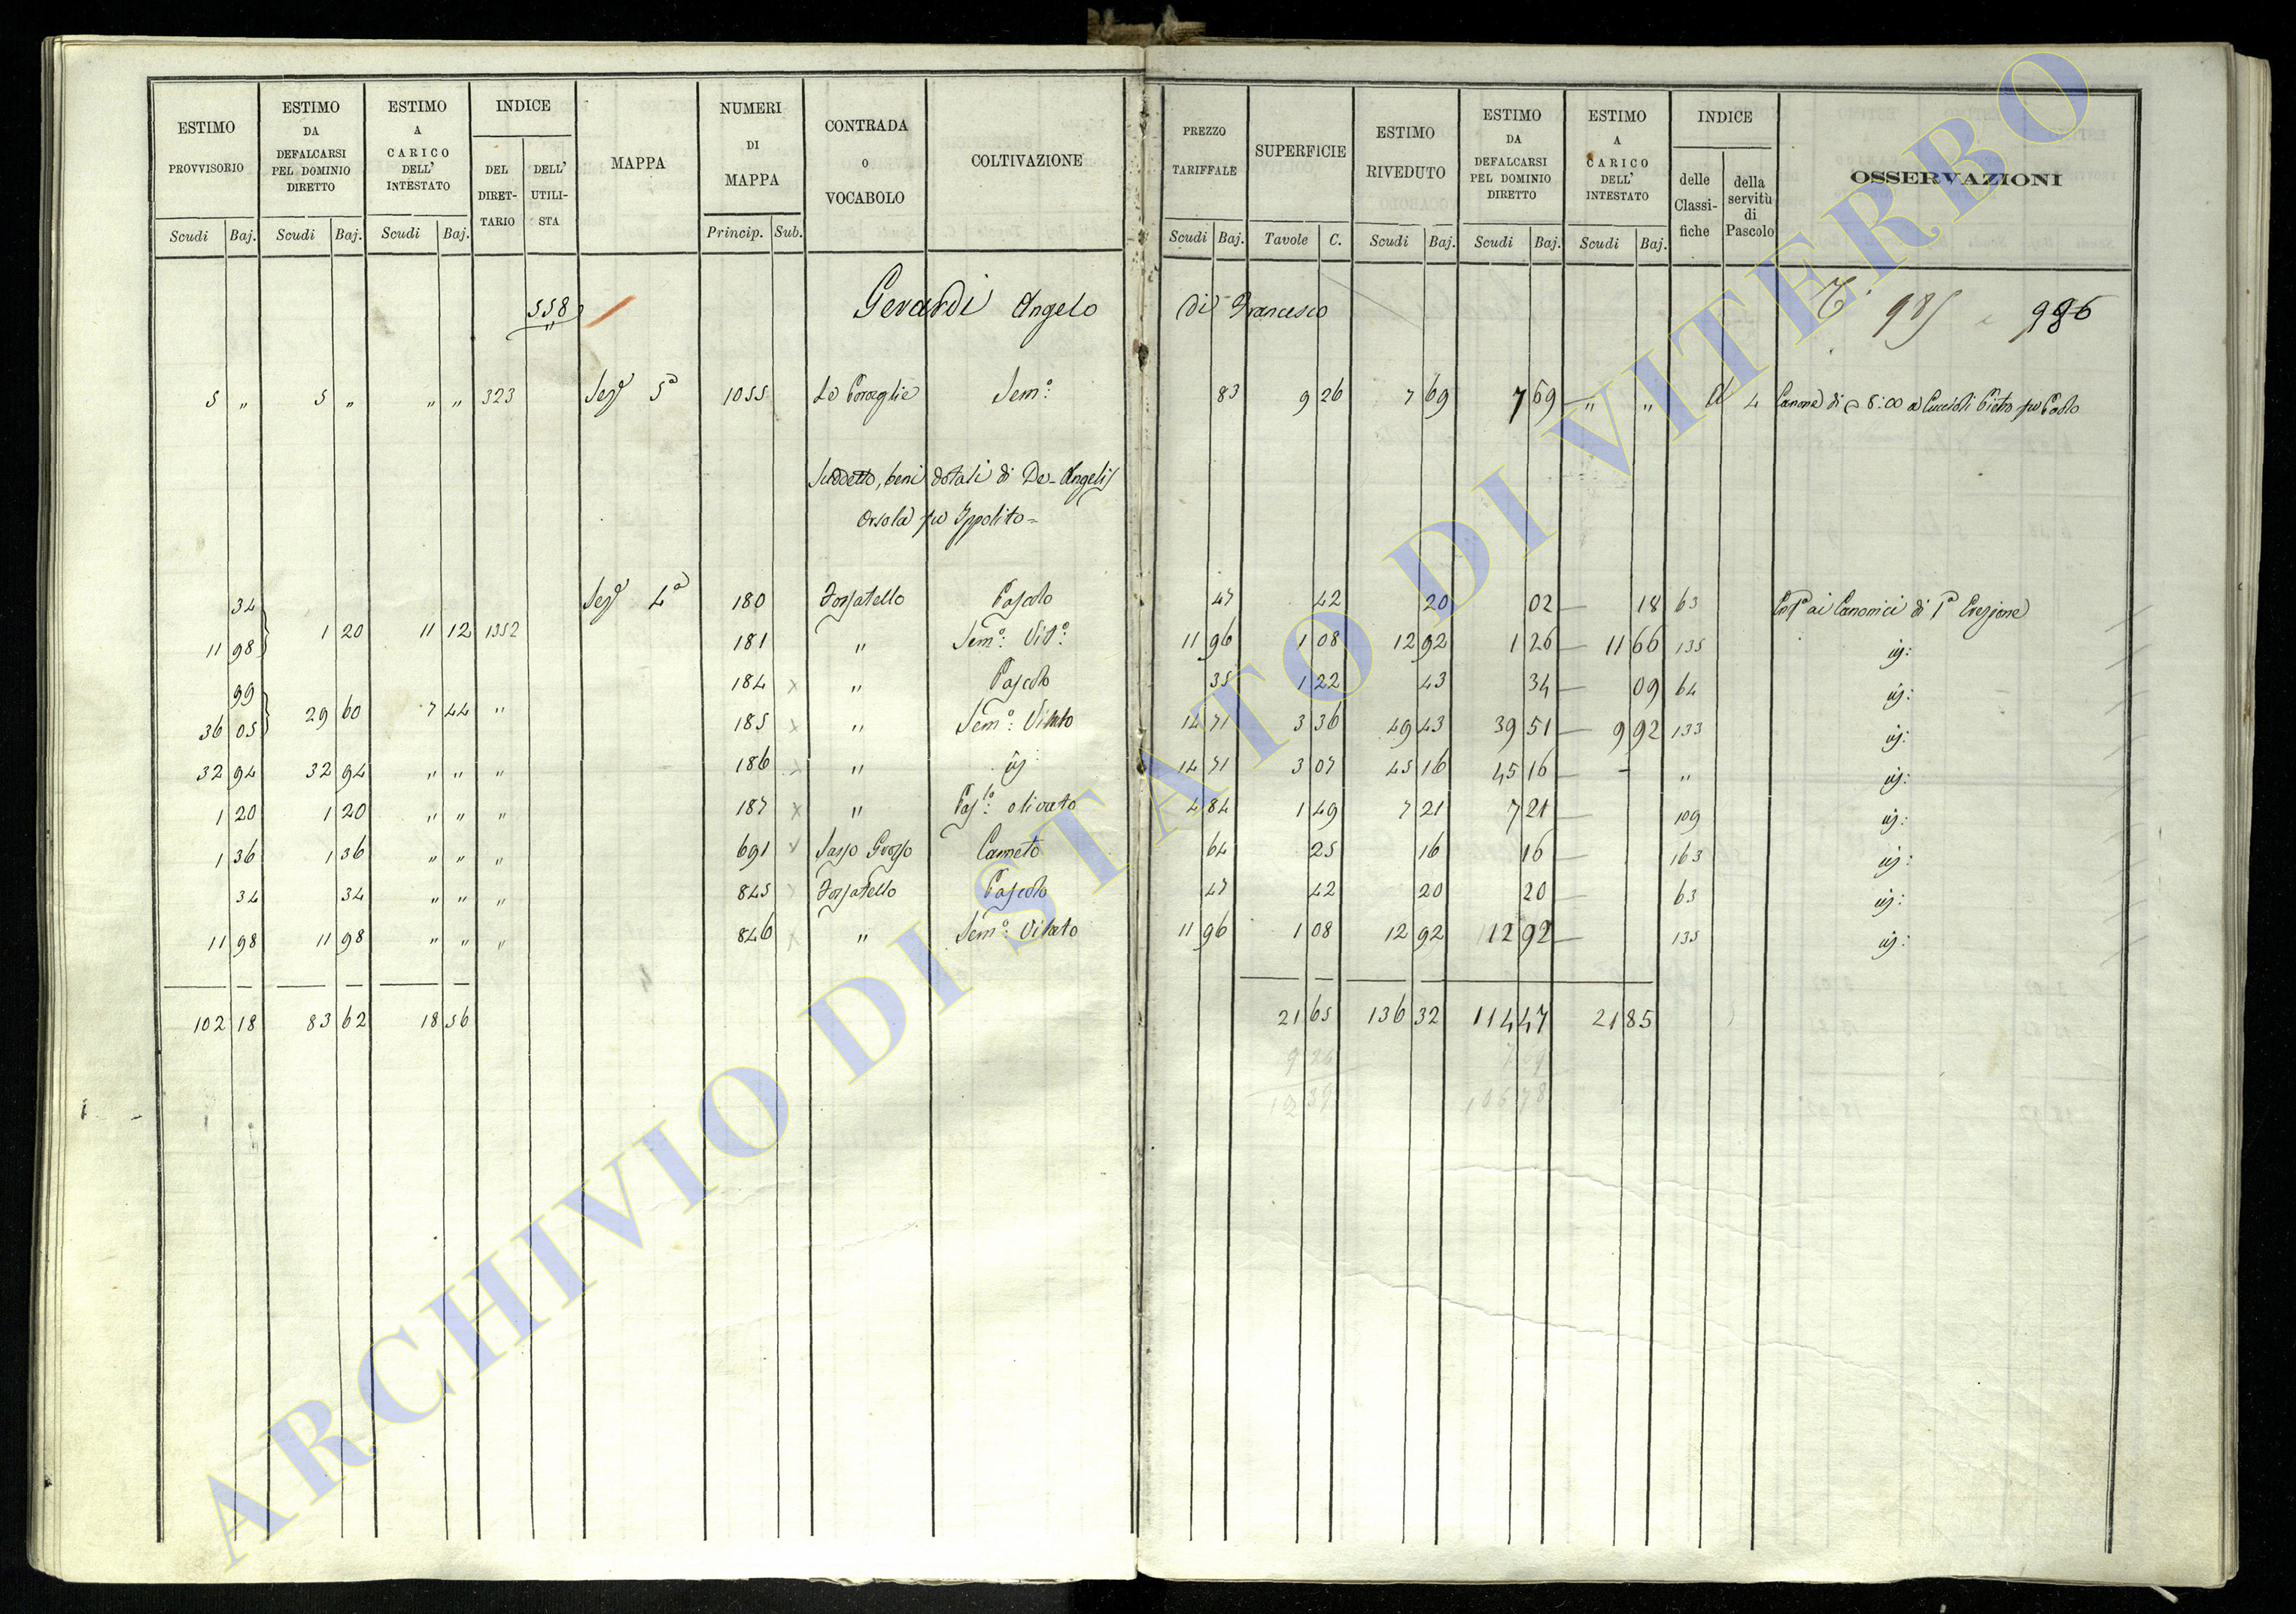 ESTIMO PROVVISORIO Scudi Baj. | ESTIMO DA DEFALCARSI PEL DOMINIO DIRETTO Scudi Baj. | ESTIMO A CARICO DELL' INTESTATO Scudi Baj. | INDICE DEL DIRET-TARIO | DELL' UTILI-STA | MAPPA | NUMERI DI MAPPA Princip. Sub. | CONTRADA O VOCABOLO | COLTIVAZIONE | PREZZO TARIFFALE Scudi Baj. | SUPERFICIE Tavole C. | ESTIMO RIVEDUTO Scudi Baj. | ESTIMO DA DEFALCARSI PEL DOMINIO DIRETTO Scudi Baj. | ESTIMO A CARICO DELL' INTESTATO Scudi Baj. | INDICE delle Classi-fiche | della servitù di Pascolo | OSSERVAZIONI
558 Gerardi Angelo di Francesco 985 986
5 " 5 " " " 323 Sez.e 5a 1055 Sem.o 83 9 26 7 69 7 69 " " 4 Canone di 8:00 a Cuccioli Pietro fu Paolo
Suddetto, beni dotali di De-Angelis
Orsola fu Ippolito =
34 Sez.e 4a 180 Fossatello Pascolo 47 42 20 02 18 63 ai Canonici di 1a Erezione
11 98 1 20 11 12 1352 181 " Sem.o Vit.o 11 96 1 08 12 92 1 26 11 66 135 id:
99 184 " Pascolo 35 1 22 43 34 09 64 id:
36 05 29 60 7 44 " 185 " Sem.o Vitato 14 71 3 36 49 43 39 51 9 92 133 id:
32 94 32 94 " " " 186 " id 14 71 3 07 45 16 45 16 - " id:
1 20 1 20 " " " 187 " Pas.lo olivato 4 84 1 49 7 21 7 21 109 id:
1 36 1 36 " " " 691 Sasso Grosso Canneto 64 25 16 16 163 id:
34 34 " " " 845 Fossatello Pascolo 47 42 20 20 63 id:
11 98 11 98 " " " 846 " Sem.o Vitato 11 96 1 08 12 92 12 92 135 id:
102 18 83 62 18 56 21 65 136 32 114 47 21 85
9 26 7 69
12 39 106 78
ARCHIVIO DI STATO DI VITERBO